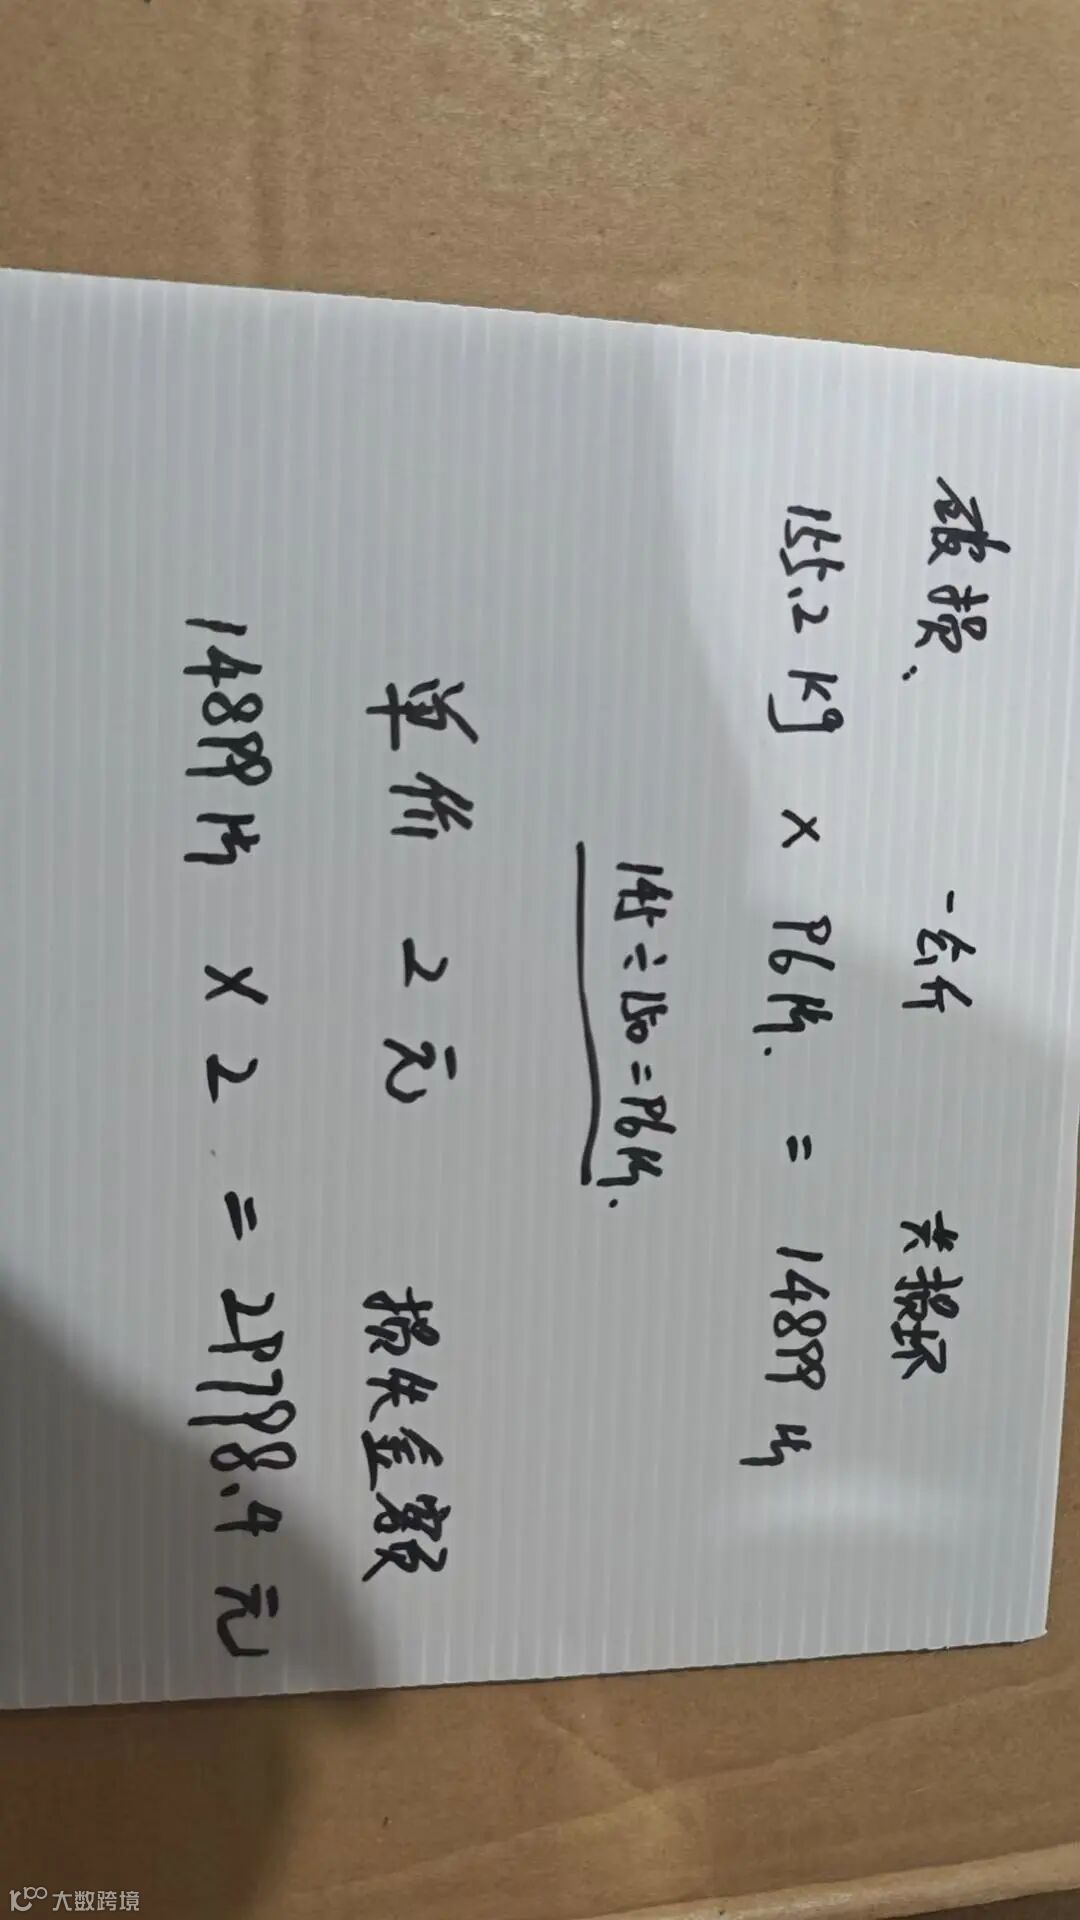 破损: 一公斤 共损坏
155.2 KG × 96片. = 14899片
145÷150=96片.
单价 2元 损失金额
14899片 × 2 = 29798.4元
大数跨境